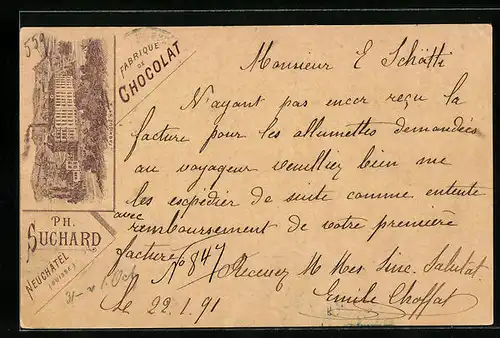 559
FABRIQUE
DE
CHOCOLAT
PH.
SUCHARD
NEUCHÂTEL
(SUISSE)
Monsieur E Schätti
N'ayant pas encor reçu la
facture pour les allumettes demandées
au voyageur veuilliez bien me
les expédier de suite comme entente
avec
remboursement de votre première
facture No 847
Recevez M Mes Sinc. Salutat.
le 22.1.91
Emile Choffat